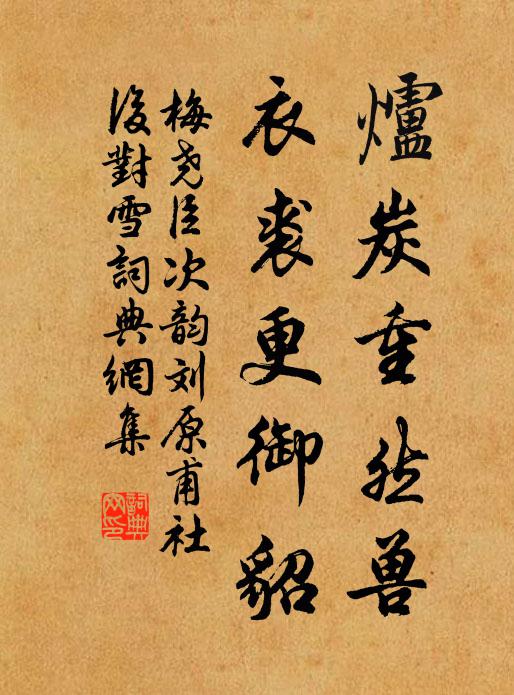 爐炭重然兽
衣裘更御貂
梅尧臣次韵刘原甫社
後對雪詞典網集
詞典
网印